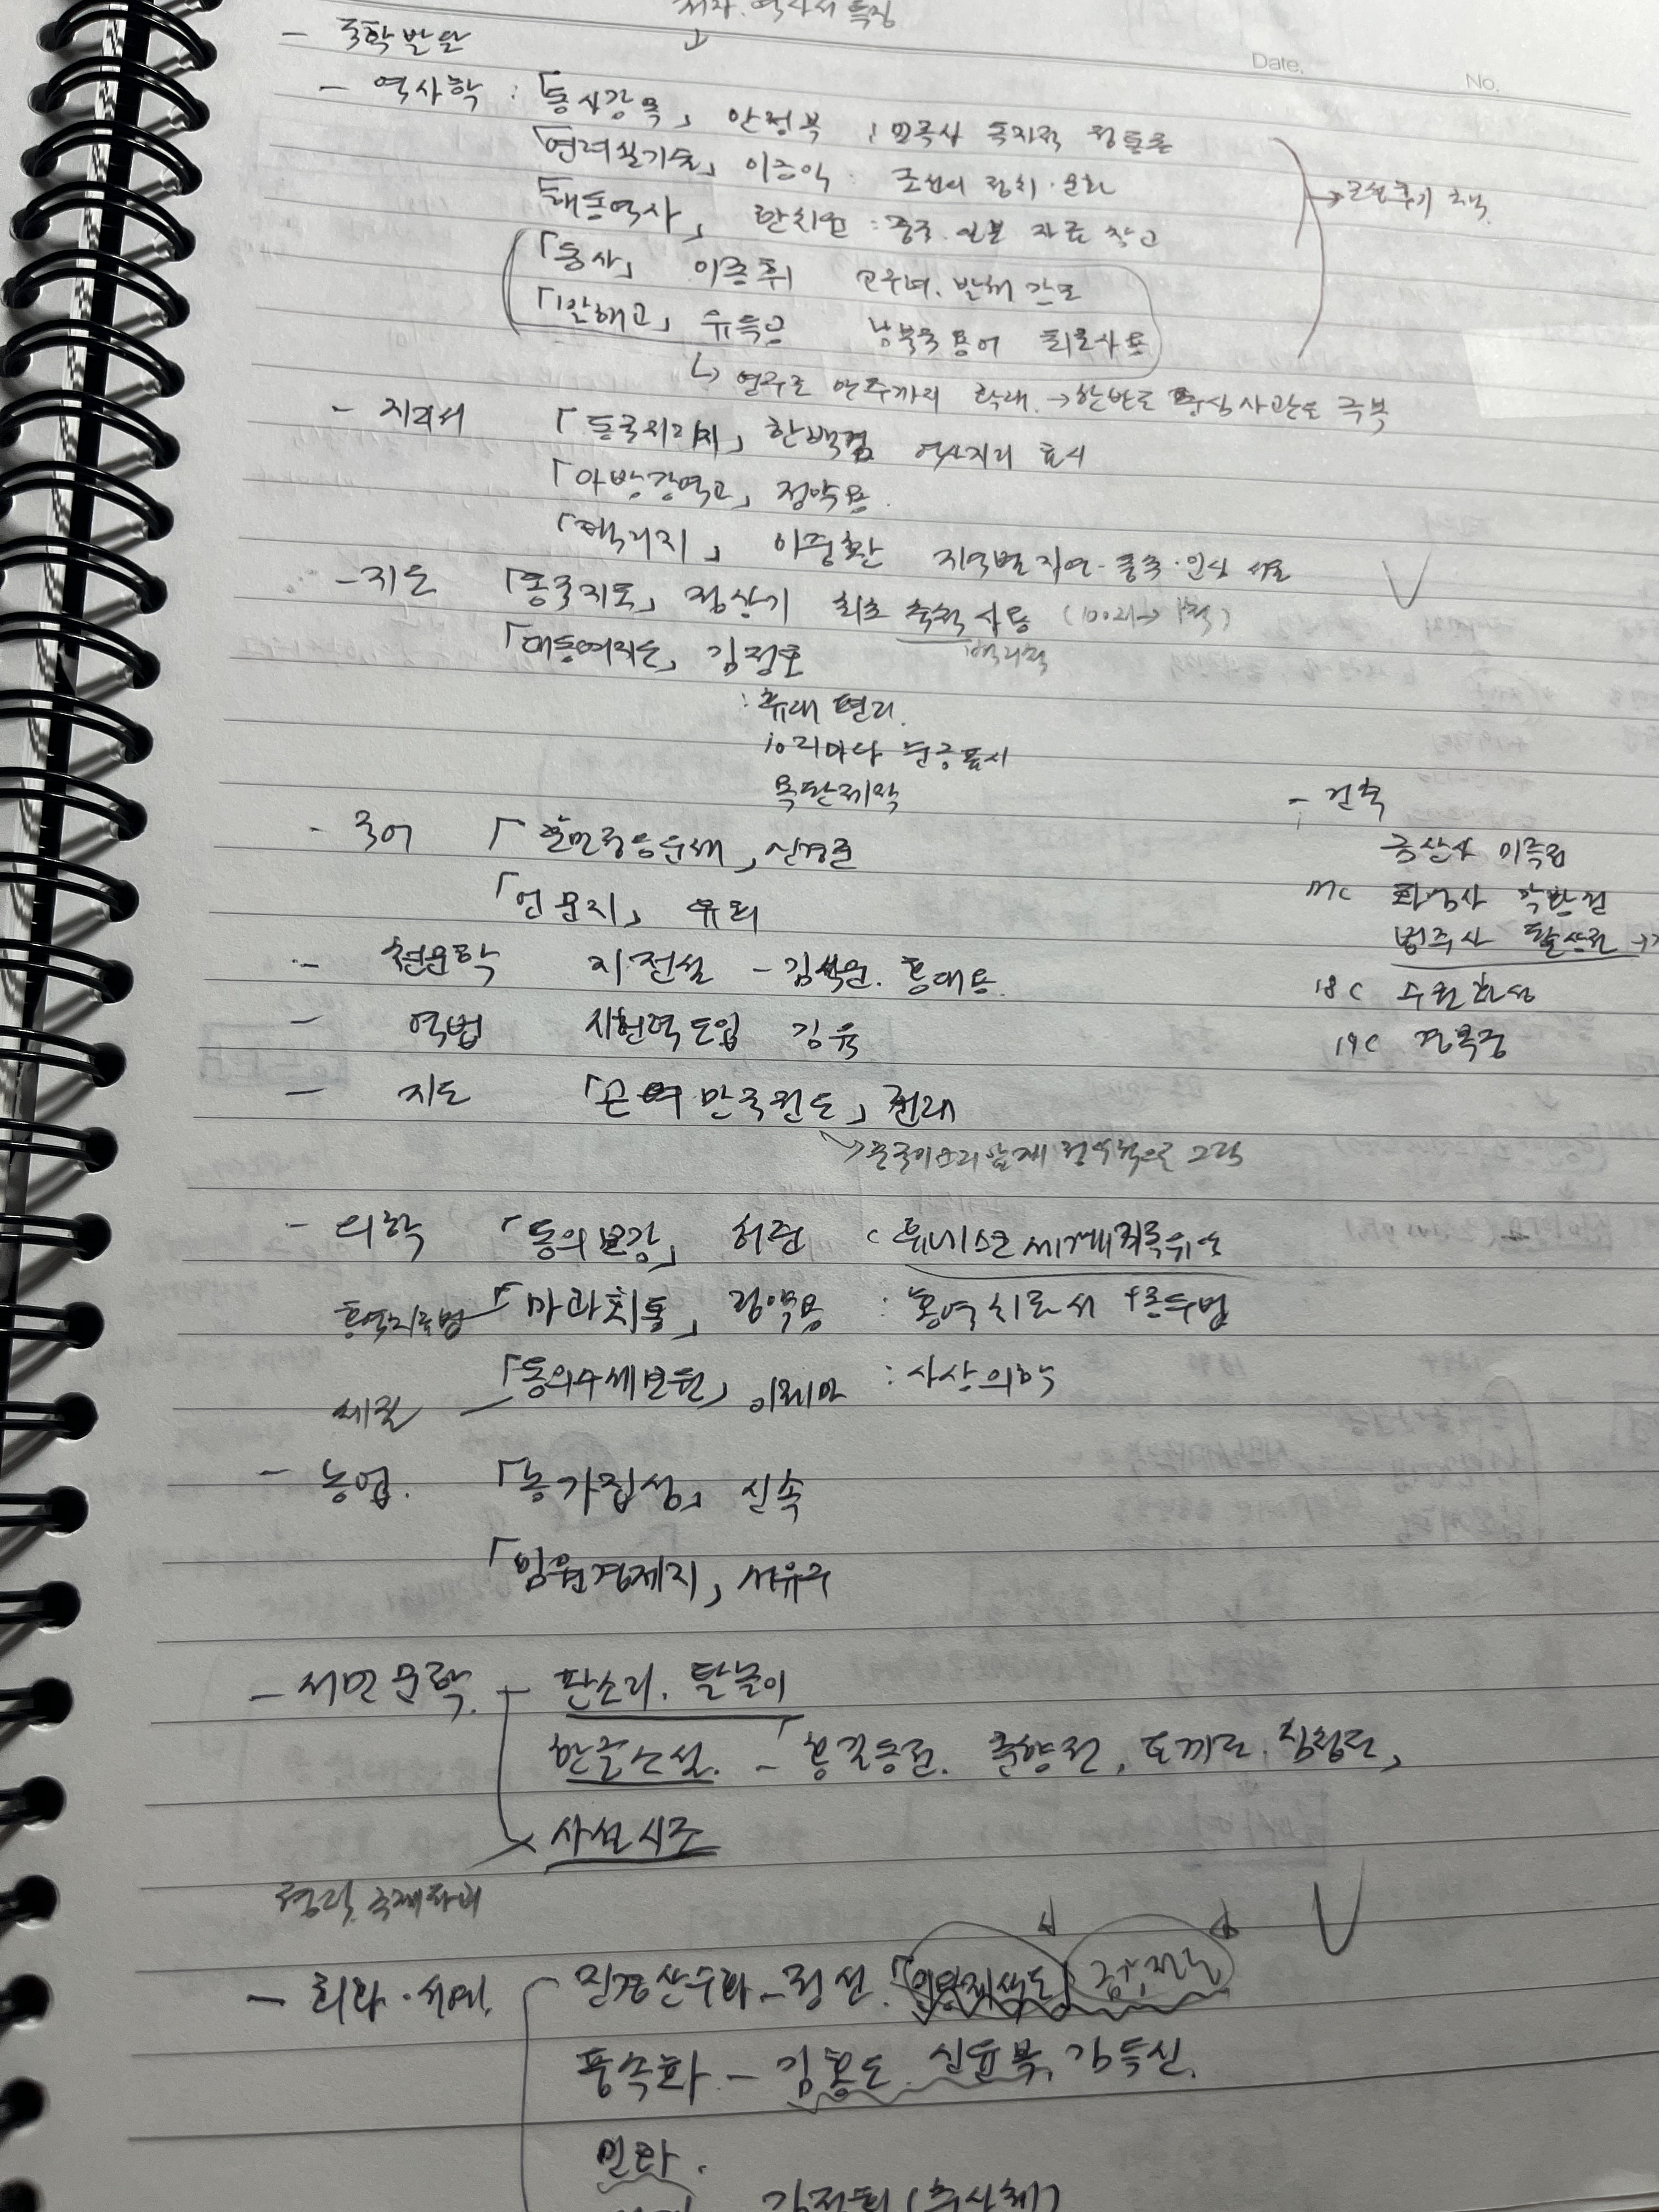 저자. 역사서 특징
Date.
No.
- 국학발달
- 역사학 : 「동사강목」 안정복 : 민족사 독자적 정통론
「연려실기술」 이긍익 : 조선의 정치·문화
「해동역사」 한치윤 : 중국. 일본 자료 참고
→ 조선후기 책
「동사」 이종휘 고구려. 발해 강조
「발해고」 유득공 남북국 용어 최초사용
↳ 연구를 만주까지 확대. → 한반도 중심 사관을 극복
- 지리서 「동국지리지」 한백겸 역사지리 표시
「아방강역고」 정약용
「택리지」 이중환 지역별 자연·풍속·인심 서술
- 지도 「동국지도」 정상기 최초 축척 사용 (100리→1척)
백리척
「대동여지도」 김정호
: 휴대 편리.
10리마다 눈금표시
목판제작
- 국어 「훈민정음운해」 신경준
「언문지」 유희
- 천문학 지전설 - 김석문. 홍대용.
- 역법 시헌력도입 김육
- 지도 「곤여만국전도」 전래
- 건축
금산사 미륵전
17C 화엄사 각황전
법주사 팔상전 →
18C 수원화성
19C 경복궁
- 의학 「동의보감」 허준 유네스코 세계기록유산
홍역치료법 - 「마과회통」 정약용 : 홍역 치료서 +종두법
체질 - 「동의수세보원」 이제마 : 사상의학
- 농업. 「농가집성」 신속
「임원경제지」 서유구
- 서민문학 - 판소리. 탈놀이
한글소설. - 홍길동전. 춘향전, 토끼전. 심청전,
사설시조
형식
- 회화·서예. 진경산수화 - 정선. 「인왕제색도」 금강전도
풍속화 - 김홍도. 신윤복. 김득신.
민화.
김정희 (추사체)